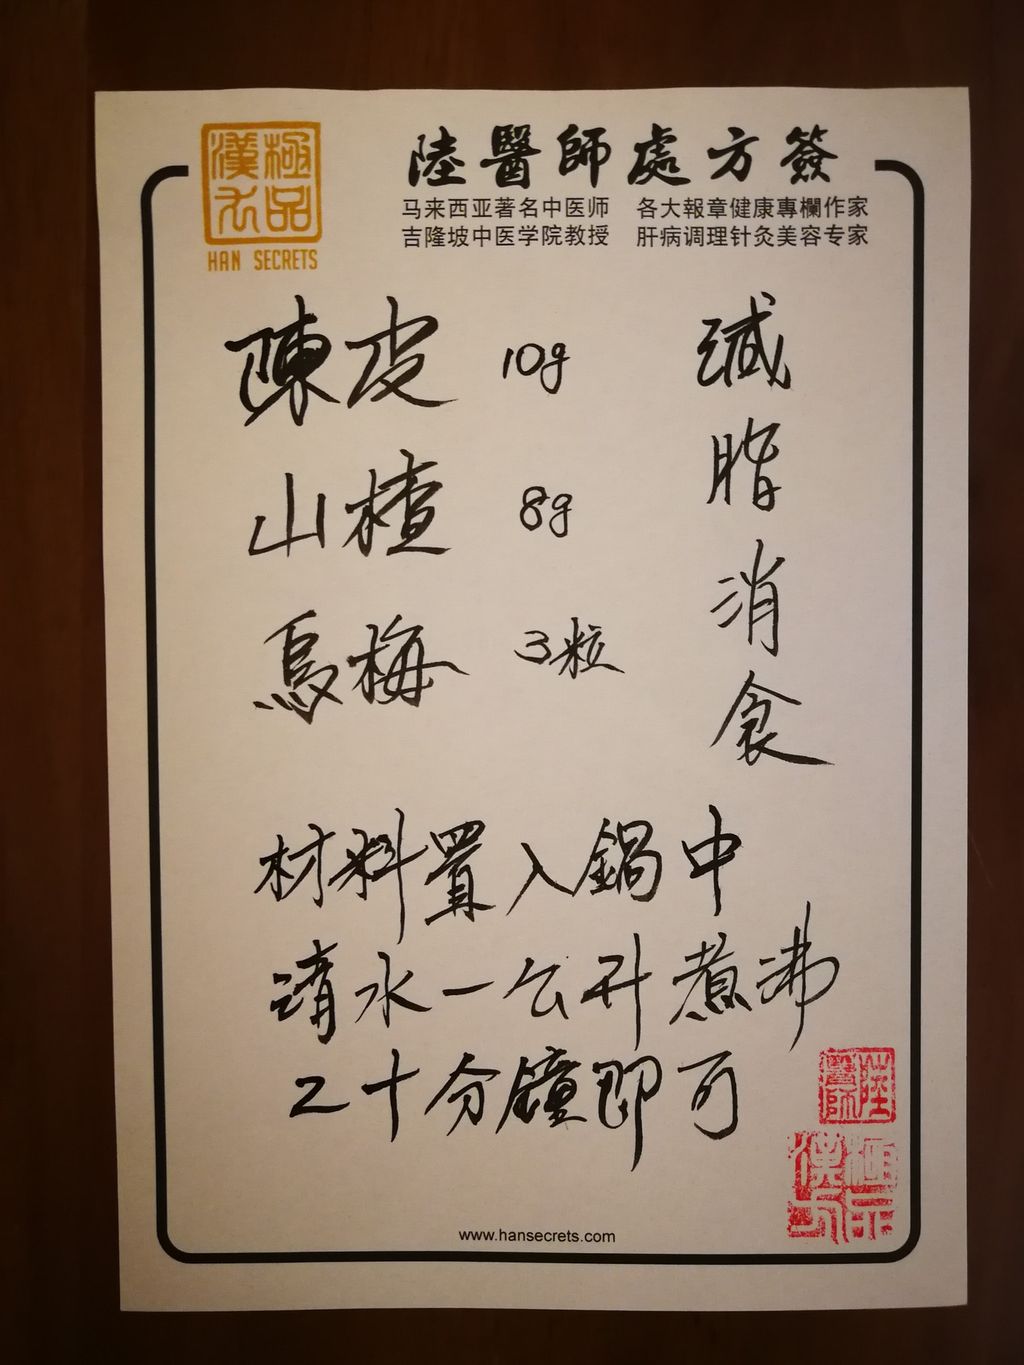 極品漢方
HAN SECRETS
陸醫師處方簽
马来西亚著名中医师 各大報章健康專欄作家
吉隆坡中医学院教授 肝病调理针灸美容专家
陳皮 10g
山楂 8g
烏梅 3粒
減脂消食
材料置入鍋中
清水一公升煮沸
二十分鐘即可
陸醫師
極品漢方
www.hansecrets.com